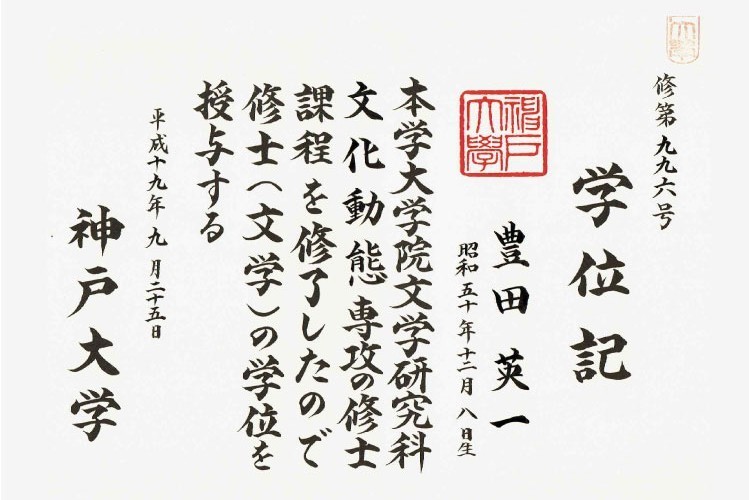 修第九九六号
学位記
豊田英一
昭和五十年十二月八日生
神戸
大學
本学大学院文学研究科
文化動態専攻の修士
課程を修了したので
修士(文学)の学位を
授与する
平成十九年九月二十五日
神戸大学